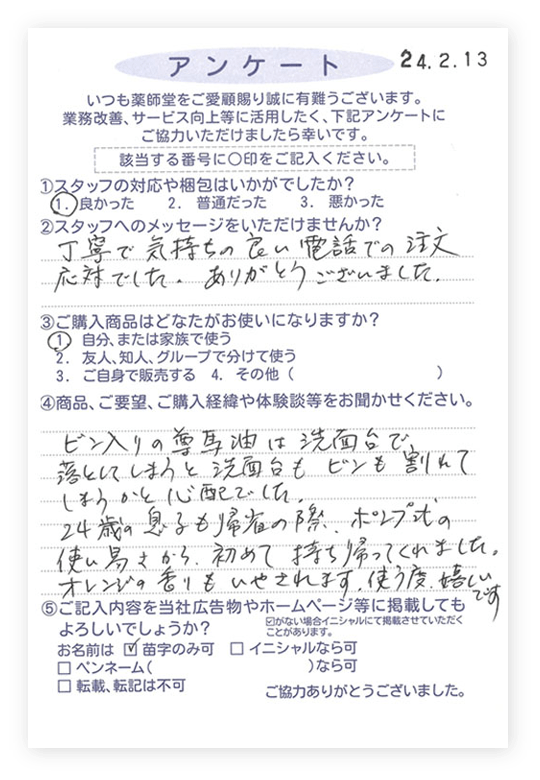 アンケート
24.2.13
いつも薬師堂をご愛顧賜り誠に有難うございます。
業務改善、サービス向上等に活用したく、下記アンケートに
ご協力いただけましたら幸いです。
該当する番号に〇印をご記入ください。
①スタッフの対応や梱包はいかがでしたか?
1. 良かった 2. 普通だった 3. 悪かった
②スタッフへのメッセージをいただけませんか?
丁寧で気持ちの良い電話での注文
応対でした。ありがとうございました。
③ご購入商品はどなたがお使いになりますか?
1 自分、または家族で使う
2. 友人、知人、グループで分けて使う
3. ご自身で販売する 4. その他( )
④商品、ご要望、ご購入経緯や体験談等をお聞かせください。
ビン入りの尊馬油は洗面台で、
落としてしまうと洗面台もビンも割れて
しまうかと心配でした。
24歳の息子も帰省の際、ポンプ式の
使い易さから、初めて持ち帰ってくれました。
オレンジの香りもいやされます。使う度、嬉しい
です
⑤ご記入内容を当社広告物やホームページ等に掲載しても
よろしいでしょうか?
☑がない場合イニシャルにて掲載させていただく
ことがあります。
お名前は ☑ 苗字のみ可 □ イニシャルなら可
□ ペンネーム( )なら可
□ 転載、転記は不可
ご協力ありがとうございました。